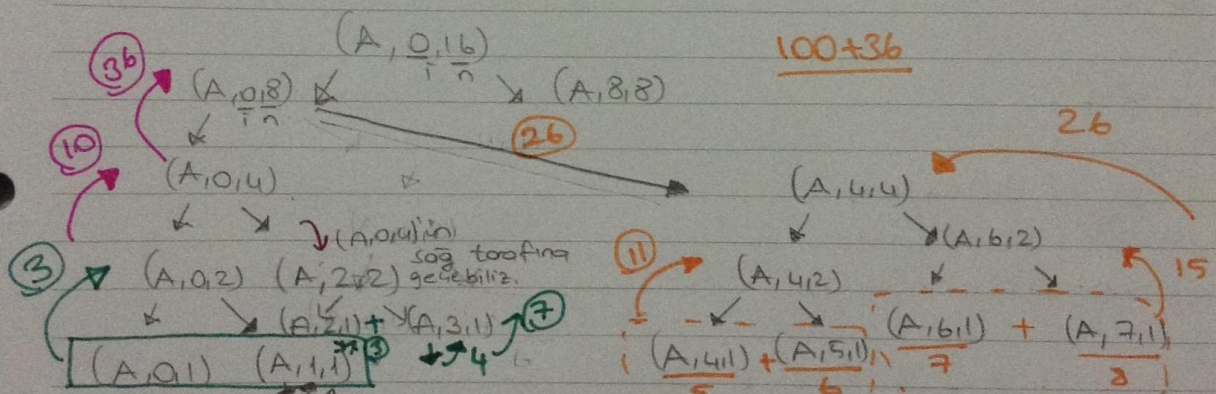 (A, 0, 16)
i n
100+36
36
(A, 0, 8)
i n
(A, 8, 8)
26
26
10
(A, 0, 4)
(A, 4, 4)
(A, 0, 4)'ün
sağ tarafına
geçebiliz.
(A, 6, 2)
3
(A, 0, 2) (A, 2, 2)
11
(A, 4, 2)
15
(A, 2, 1) + (A, 3, 1)
7
4
(A, 0, 1) (A, 1, 1)
3
(A, 4, 1) + (A, 5, 1)
5 6
(A, 6, 1) + (A, 7, 1)
7 8